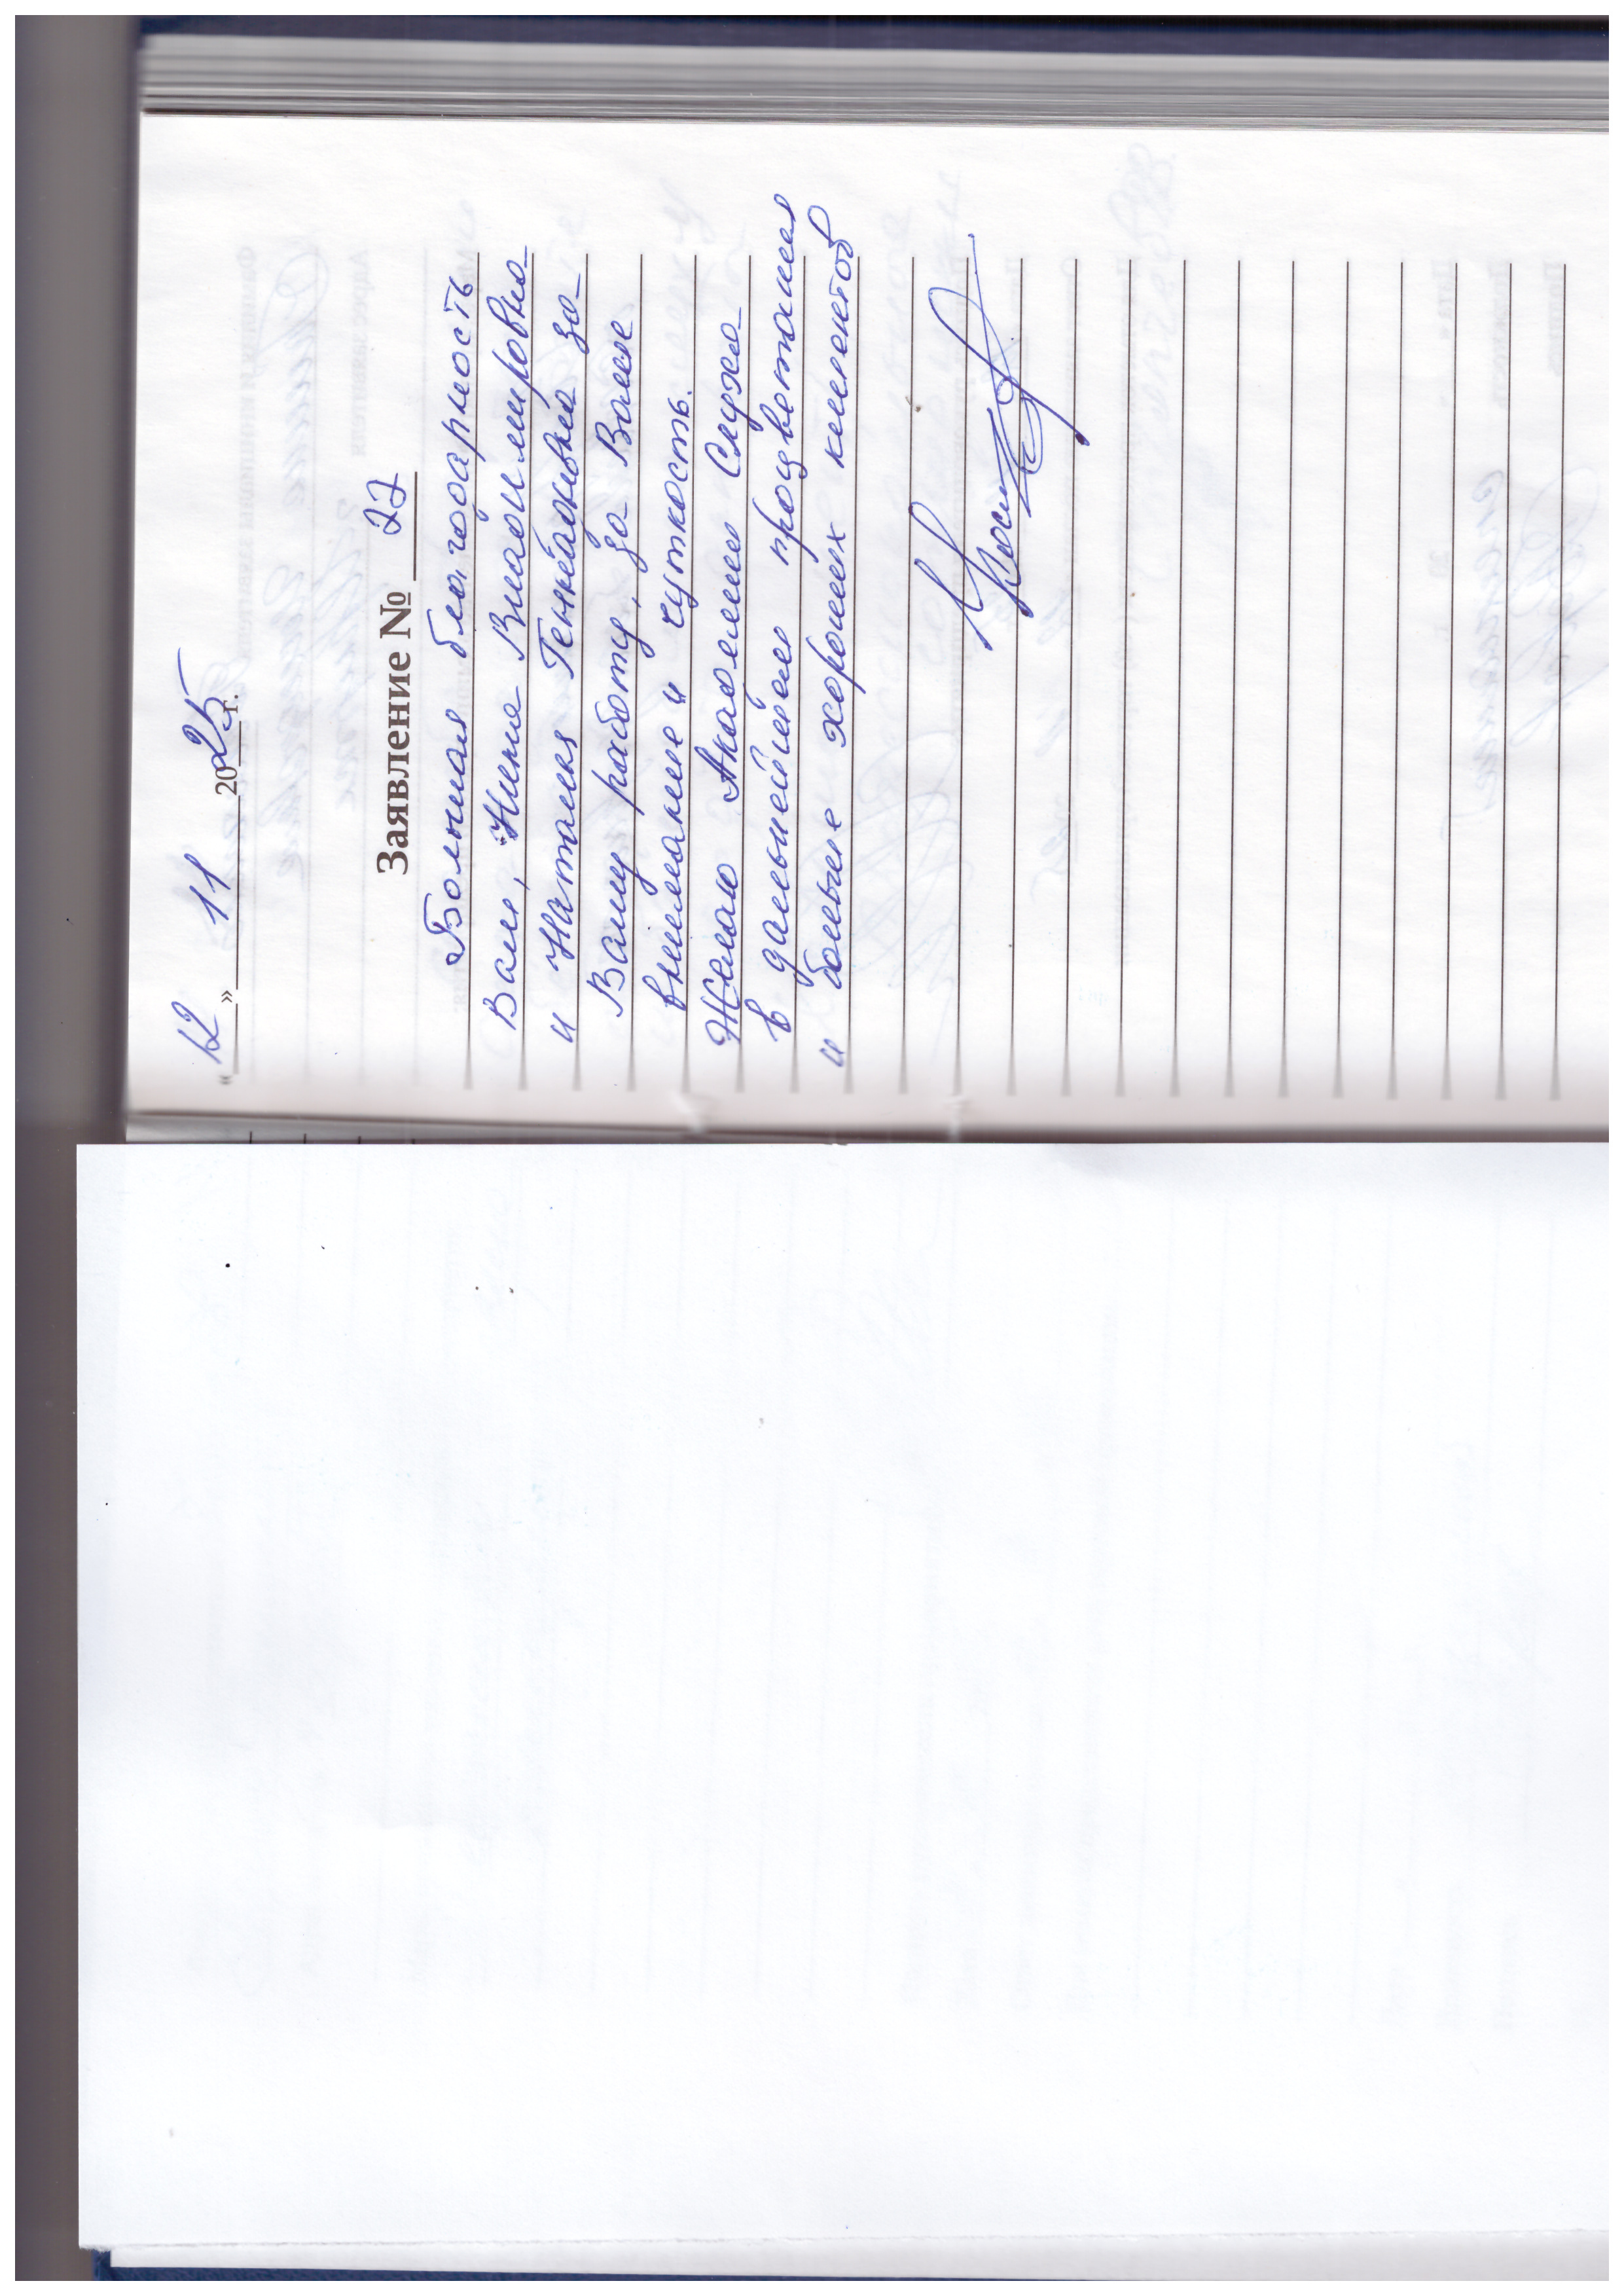 «12» 11 2025 г.
Заявление № 27
Большая благодарность
Вам, Нина Владимировна
и Наталия Геннадьевна за
Вашу работу, за Ваше
внимание и чуткость.
Желаю Академии Служа
в дальнейшем процветания
и больше хороших клиентов